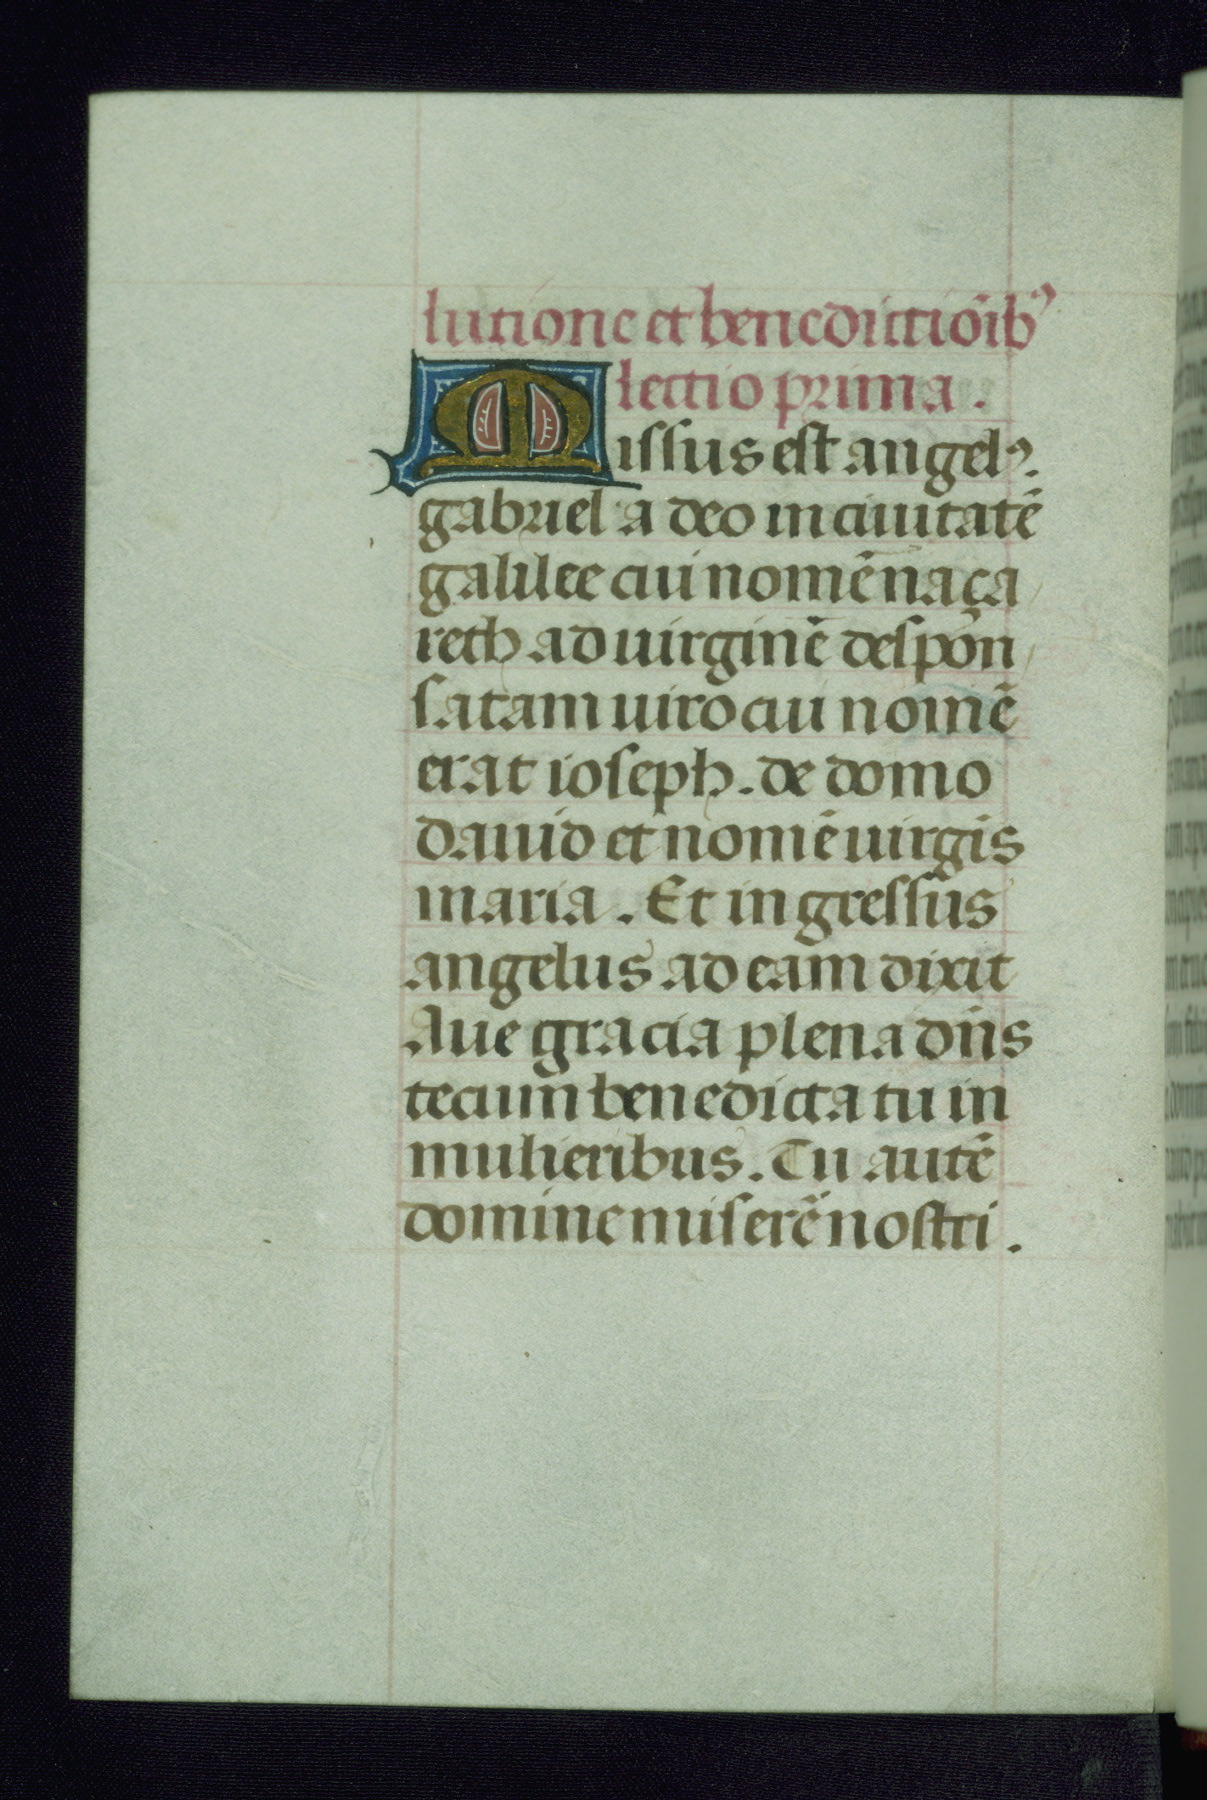 lutione et benedictiōib⁹
lectio prima.
Missus est angel⁹.
gabriel a deo in ciuitatē
galilee cui nomē naça
reth ad uirginē despon
satam uiro cui nomē
erat ioseph. de domo
dauid et nomē uirgīs
maria. Et ingressus
angelus ad eam dixit
Aue gracia plena dn̄s
tecum benedicta tu in
mulieribus. Tu autē
domine miserē nostri.